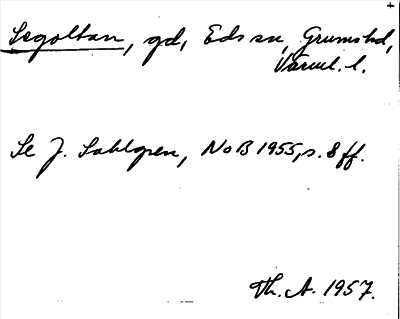 Segoltan, gd, Eds sn, Grums hd,
Värml. l.
Se J. Sahlgren, NoB 1955, s. 8 ff.
Th. A. 1957.